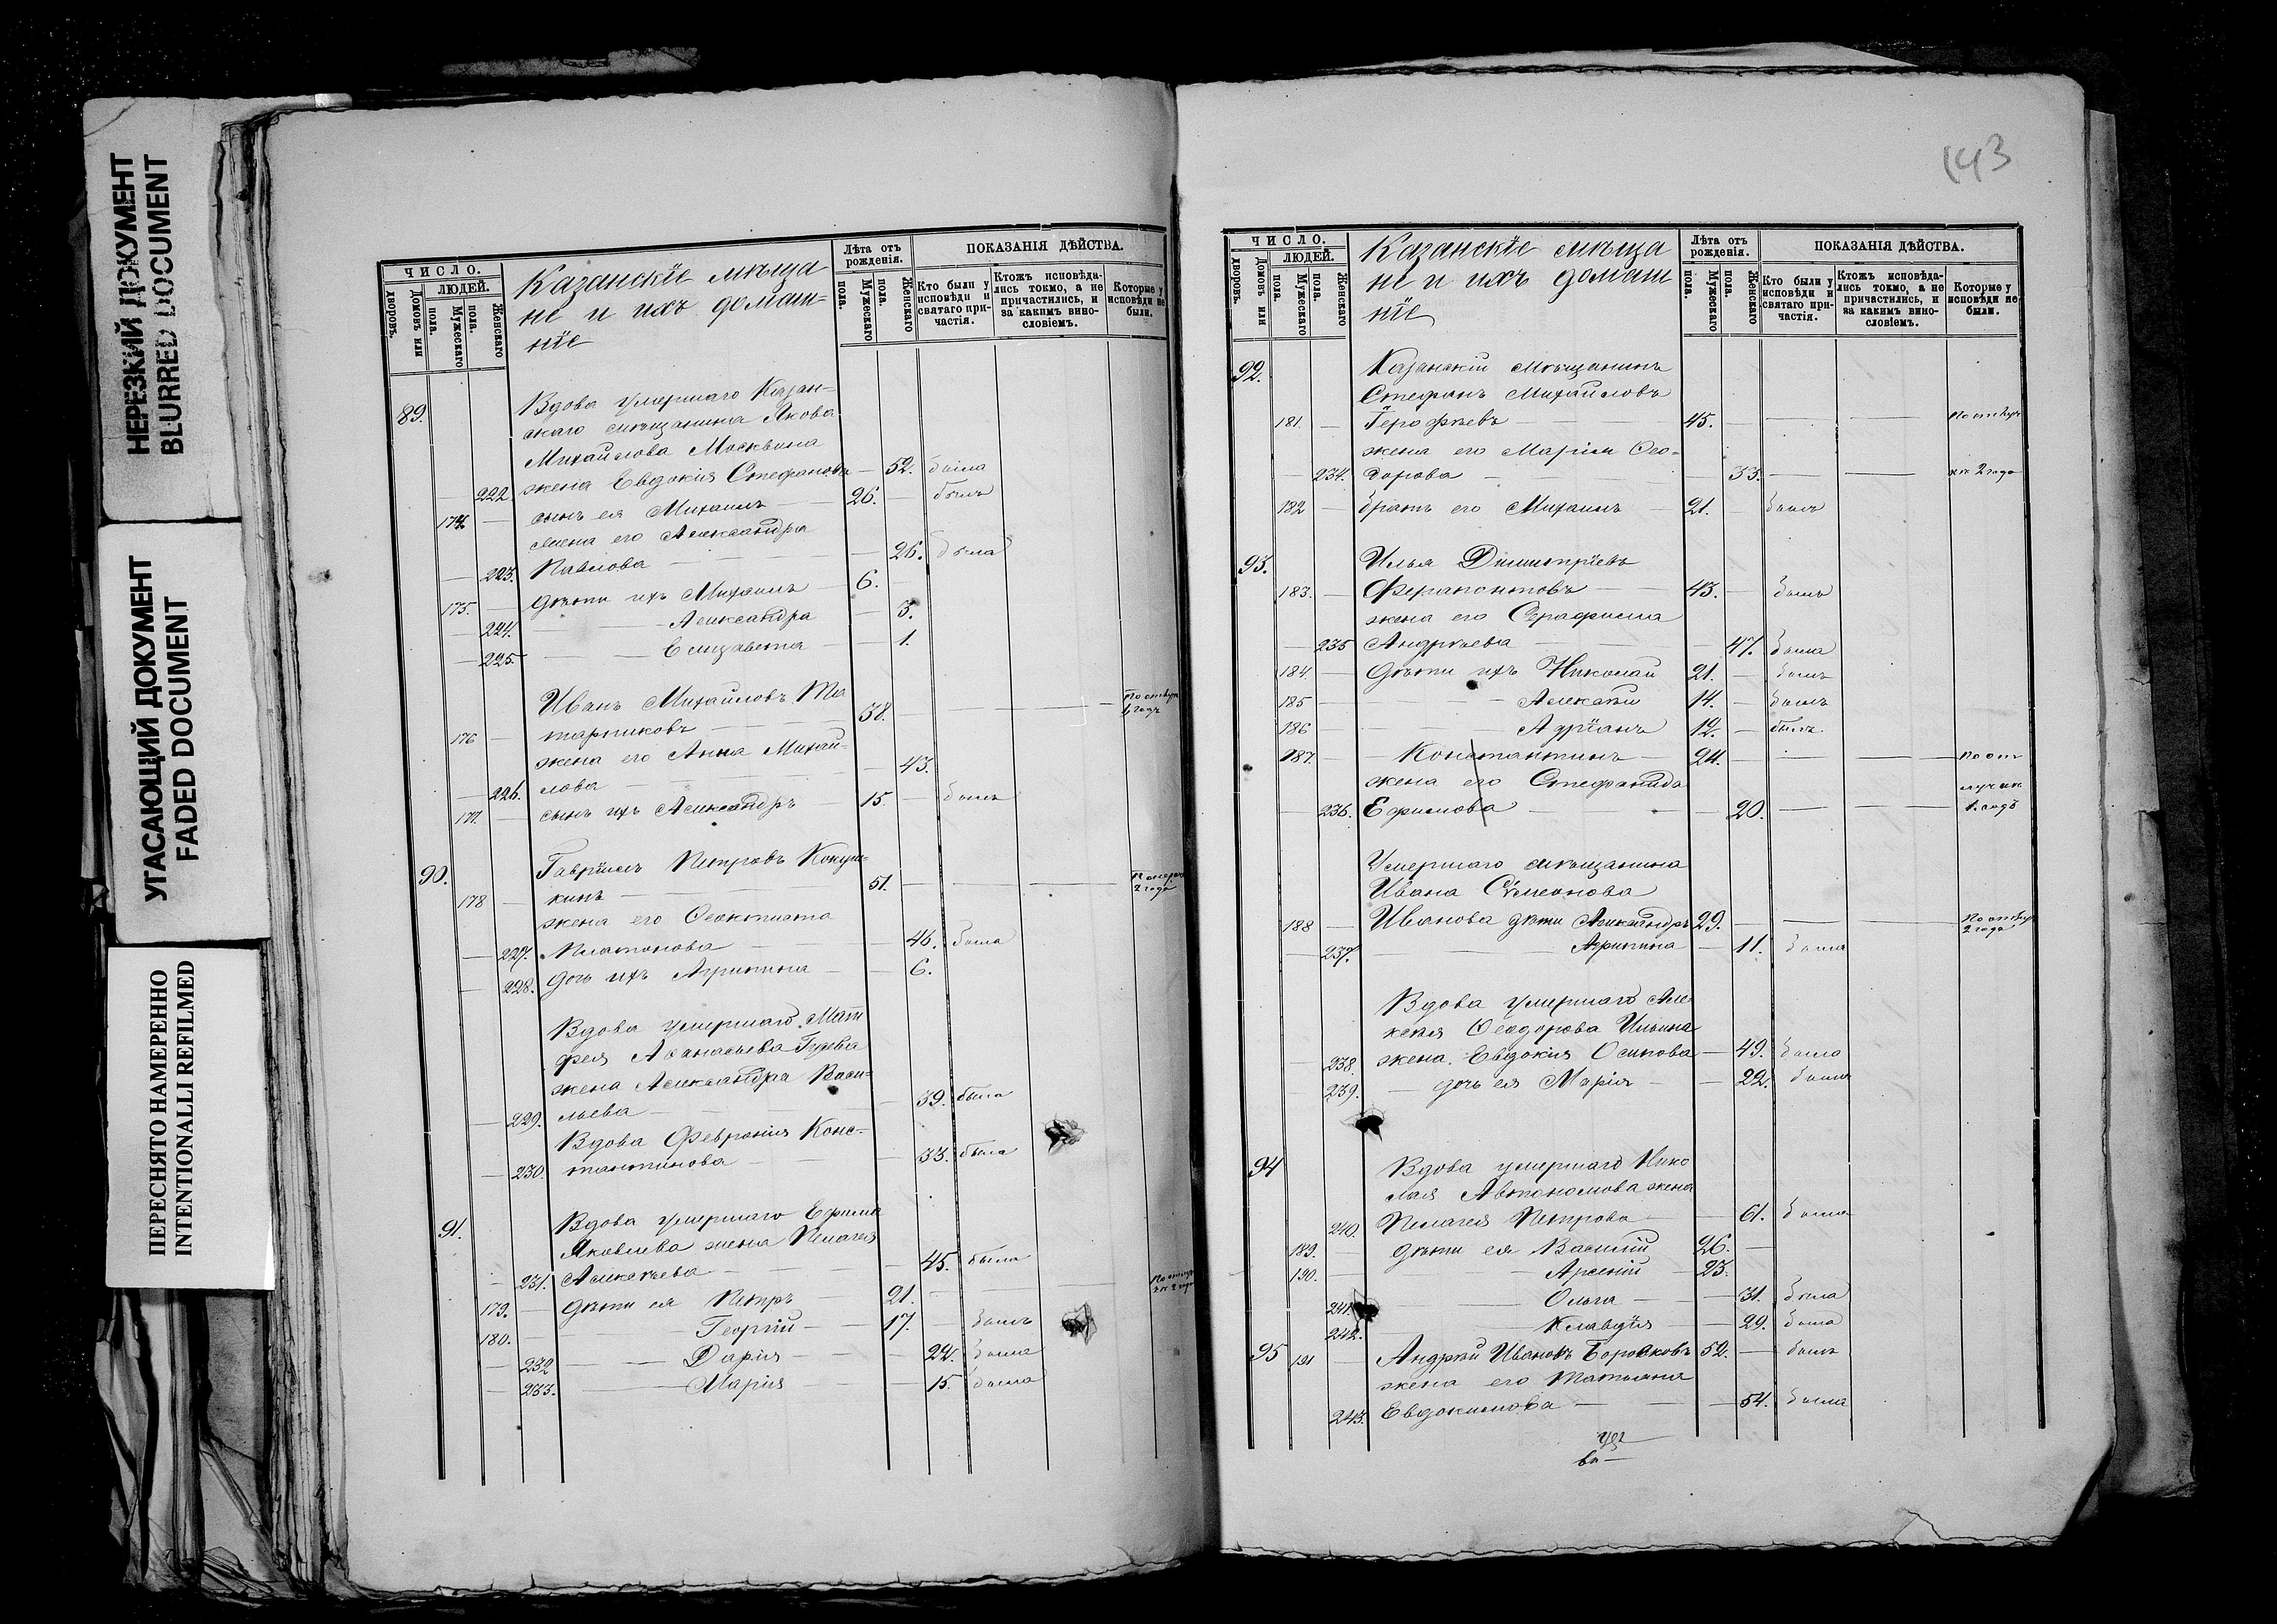 НЕРЕЗКИЙ ДОКУМЕНТ
BLURRED DOCUMENT
УГАСАЮЩИЙ ДОКУМЕНТ
FADED DOCUMENT
ПЕРЕСНЯТО НАМЕРЕННО
INTENTIONALLI REFILMED
ЧИСЛО.
ЛЮДЕЙ.
Домовъ или дворовъ.
Мужескаго пола.
Женскаго пола.
Казанскіе мѣща
не и ихъ домаш-
нie
Лѣта отъ рожденія.
Мужескаго пола.
Женскаго пола.
ПОКАЗАНІЯ ДѢЙСТВА.
Кто были у исповѣди и святаго причастія.
Ктожъ исповѣдались токмо, а не причастились, и за какимъ винословіемъ.
Которые у исповѣди не были.
89. Вдова умершаго Казан-
скаго мѣщанина Якова
Михайлова Москвина
222. жена Евдокія Стефанова — 52. была
174. — сынъ ея Михаилъ — 26. — былъ
жена его Александра
223. Павлова — 26. была
175. — дѣти ихъ Михаилъ 6. —
224. Александра — 3.
225. Елизавета — 1.
Иванъ Михайловъ
176 — 38.
жена его Анна Михай-
226. лова — 43.
177. — сынъ ихъ Александръ — 15. — былъ
90. Гавріилъ Петровъ
178 — кинъ — 51. 2 года
жена его Ѳеоктиста
227. Платонова — 46. была
228. дочь ихъ Агрипина — 6.
Вдова умершаго Мат
фея Аѳанасьева
жена Александра Васи-
229. льева — 39. была
Вдова Февронія Конс-
230. тантинова — 33. была
91. Вдова умершаго Ефима
Яковлева жена Пелагея
231. Алексѣева — 45. была
179. — дѣти ея Петръ — 21. —
180. — Георгій — 17. — былъ
232 Дарія — 22. была
233. Марія — 15. была
143
ЧИСЛО.
ЛЮДЕЙ.
Домовъ или дворовъ.
Мужескаго пола.
Женскаго пола.
Казанскіе мѣща
не и ихъ домаш
нiе
Лѣта отъ рожденія.
Мужескаго пола.
Женскаго пола.
ПОКАЗАНІЯ ДѢЙСТВА.
Кто были у исповѣди и святаго причастія.
Ктожъ исповѣдались токмо, а не причастились, и за какимъ винословіемъ.
Которые у исповѣди не были.
92. Казанскій мѣщанинъ
Стефанъ Михайловъ
181. — Ерофѣевъ — 45. —
жена его Марія Ѳео-
234. дорова — 33. — 2 года
182 — братъ его Михаилъ — 21. — былъ
93. Илья Димитріевъ
183. — Ферапонтовъ — 43. — былъ
жена его Серафима
235 Андрѣева — 47. была
184. — дѣти ихъ Николай 21. — былъ
185 — Алексѣй 14. — былъ
186 — Адріанъ 12. — былъ
187. — Константинъ — 24. —
жена его Стефанида
236. Ефимова — 20. — 1 годъ
Умершаго мѣщанина
Ивана Сѵмеонова
188 — Иванова дѣти Александръ 29. — 2 года
237. Агрипина — 11. была
Вдова умершаго Але-
ксѣя Ѳеодорова Ильина
238. жена Евдокія Осипова — 49. была
239. дочь ея Марія — 22. была
94 Вдова умершаго Нико
лая Автономова жена
240. Пелагея Петрова — 61. была
189. — дѣти ея Василій 26. —
190. — Арсеній — 23.
241. Ольга — 31. была
242. Клавдія — 29. была
95 191 — Андрей Ивановъ Боровковъ 52. — былъ
жена его Татьяна
243. Евдокимова — 54. была